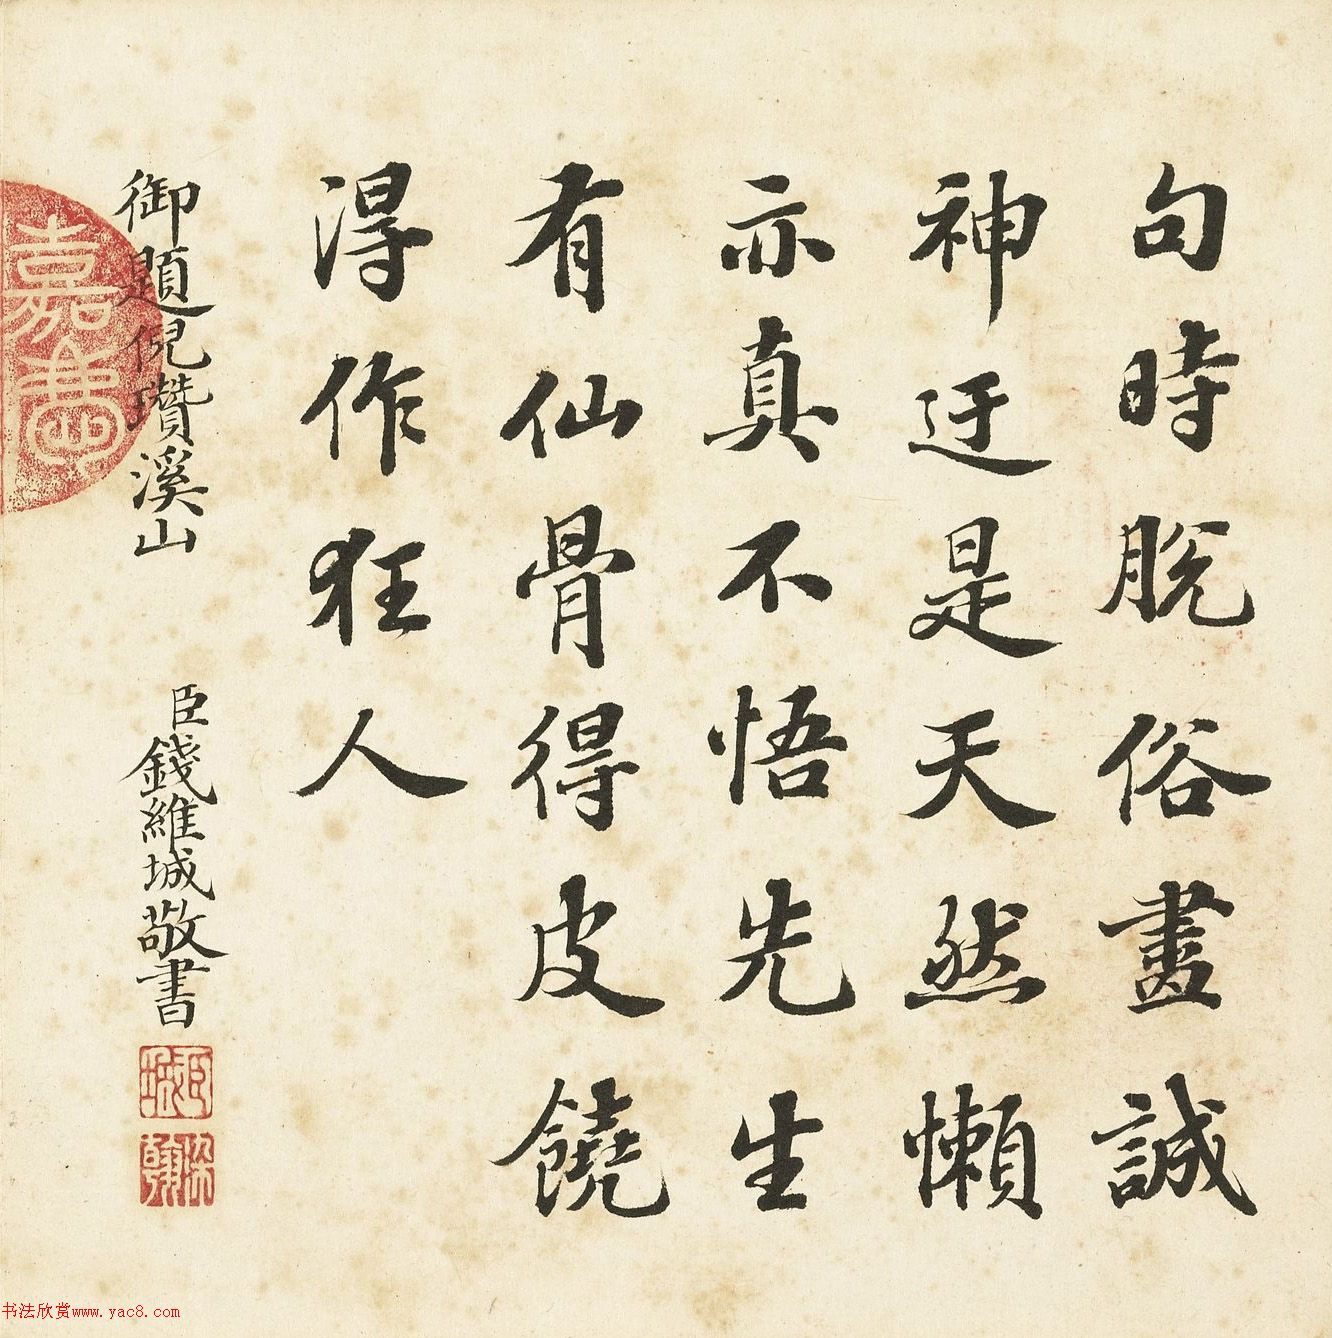 句時脫俗畫誠
神迂是天然懶
亦真不悟先生
有仙骨得皮饒
淂作狂人
御題倪瓚溪山
臣錢維城敬書
臣城
染翰
嘉慶
书法欣赏www.yac8.com